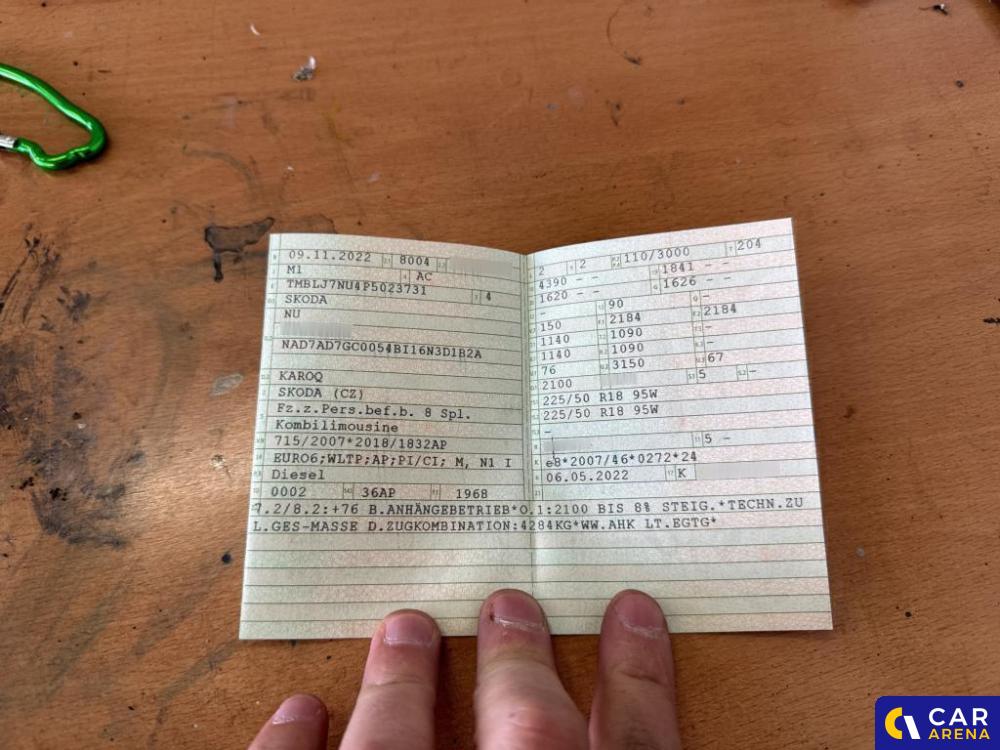 09.11.2022 8004
M1 AC
TMBLJ7NU4P5023731 4
SKODA
NU
NAD7AD7GC0054BI16N3D1B2A
KAROQ
SKODA (CZ)
Fz.z.Pers.bef.b. 8 Spl.
Kombilimousine
715/2007*2018/1832AP
EURO6;WLTP;AP;PI/CI; M, N1 I
Diesel
0002 36AP 1968
2 2 110/3000 204
4390 - - 1841 - -
1620 - - 1626 - -
- 90 -
150 2184 2184
1140 1090 -
1140 1090 -
76 3150 67
2100 5 -
225/50 R18 95W
225/50 R18 95W
-
5 -
e8*2007/46*0272*24
06.05.2022 K
7.2/8.2:+76 B.ANHÄNGEBETRIEB*O.1:2100 BIS 8% STEIG.*TECHN.ZU
L.GES-MASSE D.ZUGKOMBINATION:4284KG*WW.AHK LT.EGTG*
CAR
ARENA